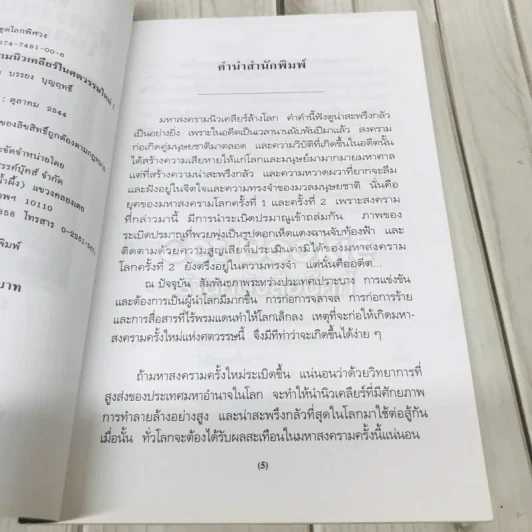 ชุดโลกพิศวง
974-7481-00-6
ามนิวเคลียร์ในศตวรรษใหม่ !
บรรยง บุญฤทธิ์
: ตุลาคม 2544
ของลิขสิทธิ์ถูกต้องตามกฎหมาย
ะจัดจำหน่ายโดย
รรค์บุ๊คส์ จำกัด
น้ำผึ้ง) แขวงคลองเตย
ทพฯ 10110
358 โทรสาร 0-2261-
พิมพ์
บาท
คำนำสำนักพิมพ์
มหาสงครามนิวเคลียร์ล้างโลก คำคำนี้ฟังดูน่าสะพรึงกลัว
เป็นอย่างยิ่ง เพราะในอดีตเป็นเวลานานนับพันปีมาแล้ว สงคราม
ก่อเกิดคู่มนุษยชาติมาตลอด และความวิบัติที่เกิดขึ้นในอดีตนั้น
ได้สร้างความเสียหายให้แก่โลกและมนุษย์มามากมายมหาศาล
แต่ที่สร้างความน่าสะพรึงกลัว และความหวาดผวาที่ยากจะลืม
และฝังอยู่ในจิตใจและความทรงจำของมวลมนุษยชาติ นั่นคือ
ยุคของมหาสงครามโลกครั้งที่ 1 และครั้งที่ 2 เพราะสงคราม
ที่กล่าวมานี้ มีการนำระเบิดปรมาณูเข้าถล่มกัน ภาพของ
ระเบิดปรมาณูที่พวยพุ่งเป็นรูปดอกเห็ดแดงฉานจับท้องฟ้า และ
ติดตามด้วยความสูญเสียที่ประเมินค่ามิได้ของมหาสงคราม
โลกครั้งที่ 2 ยังตรึงอยู่ในความทรงจำ แต่นั่นคืออดีต...
ณ ปัจจุบัน สัมพันธภาพระหว่างประเทศเปราะบาง การแข่งขัน
และต้องการเป็นผู้นำโลกมีมากขึ้น การก่อการจลาจล การก่อการร้าย
และการสื่อสารที่ไร้พรมแดนทำให้โลกเล็กลง เหตุที่จะก่อให้เกิดมหา-
สงครามครั้งใหม่แห่งศตวรรษนี้ จึงมีทีท่าว่าจะเกิดขึ้นได้ง่าย ๆ
ถ้ามหาสงครามครั้งใหม่ระเบิดขึ้น แน่นอนว่าด้วยวิทยาการที่
สูงส่งของประเทศมหาอำนาจในโลก จะทำให้นำนิวเคลียร์ที่มีศักยภาพ
การทำลายล้างอย่างสูง และน่าสะพรึงกลัวที่สุดในโลกมาใช้ต่อสู้กัน
เมื่อนั้น ทั่วโลกจะต้องได้รับผลสะเทือนในมหาสงครามครั้งนี้แน่นอน
(5)